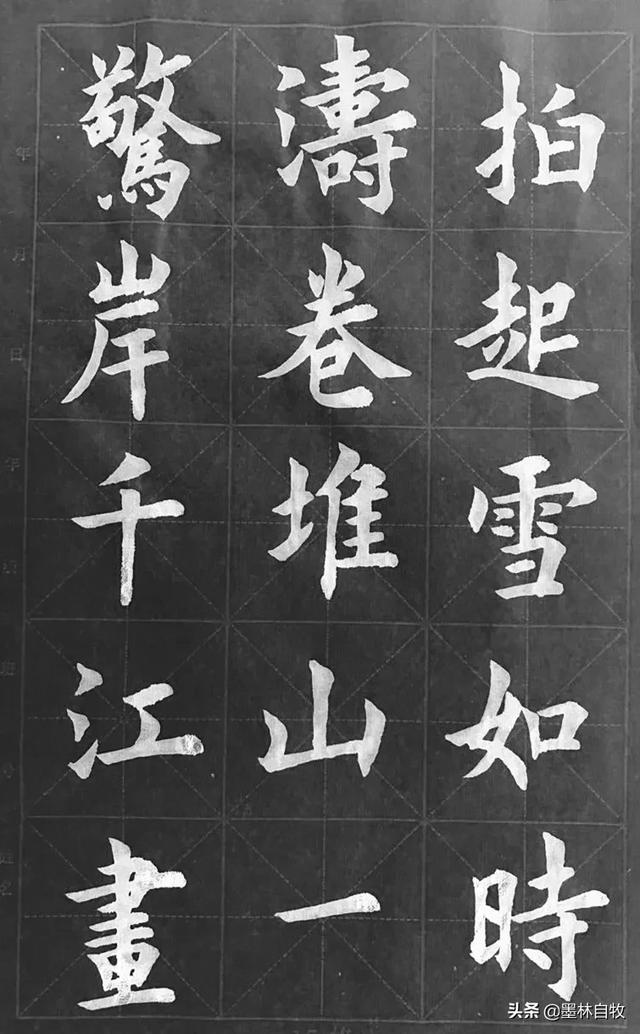 驚濤拍
岸卷起
千堆雪
江山如
畫一時
年月日
头条 @墨林自牧